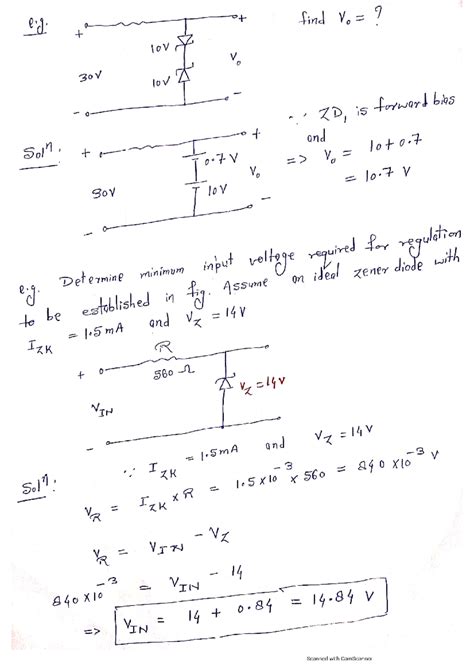 e.g. + find Vo = ?
10V
30V 10V Vo
- -
∵ ZD, is forward bias
Solⁿ: + + and
0.7 V => Vo = 10 + 0.7
30V 10V Vo = 10.7 V
- -
e.g. Determine minimum input voltage required for regulation
to be established in fig. Assume an ideal zener diode with
I_ZK = 1.5 mA and V_Z = 14V
R
+ 560 Ω
V_Z = 14V
V_IN
-
Solⁿ: ∵ I_ZK = 1.5 mA and V_Z = 14V
V_R = I_ZK × R = 1.5 × 10⁻³ × 560 = 840 × 10⁻³ V
V_R = V_IN - V_Z
840 × 10⁻³ = V_IN - 14
=> V_IN = 14 + 0.84 = 14.84 V
Scanned with CamScanner